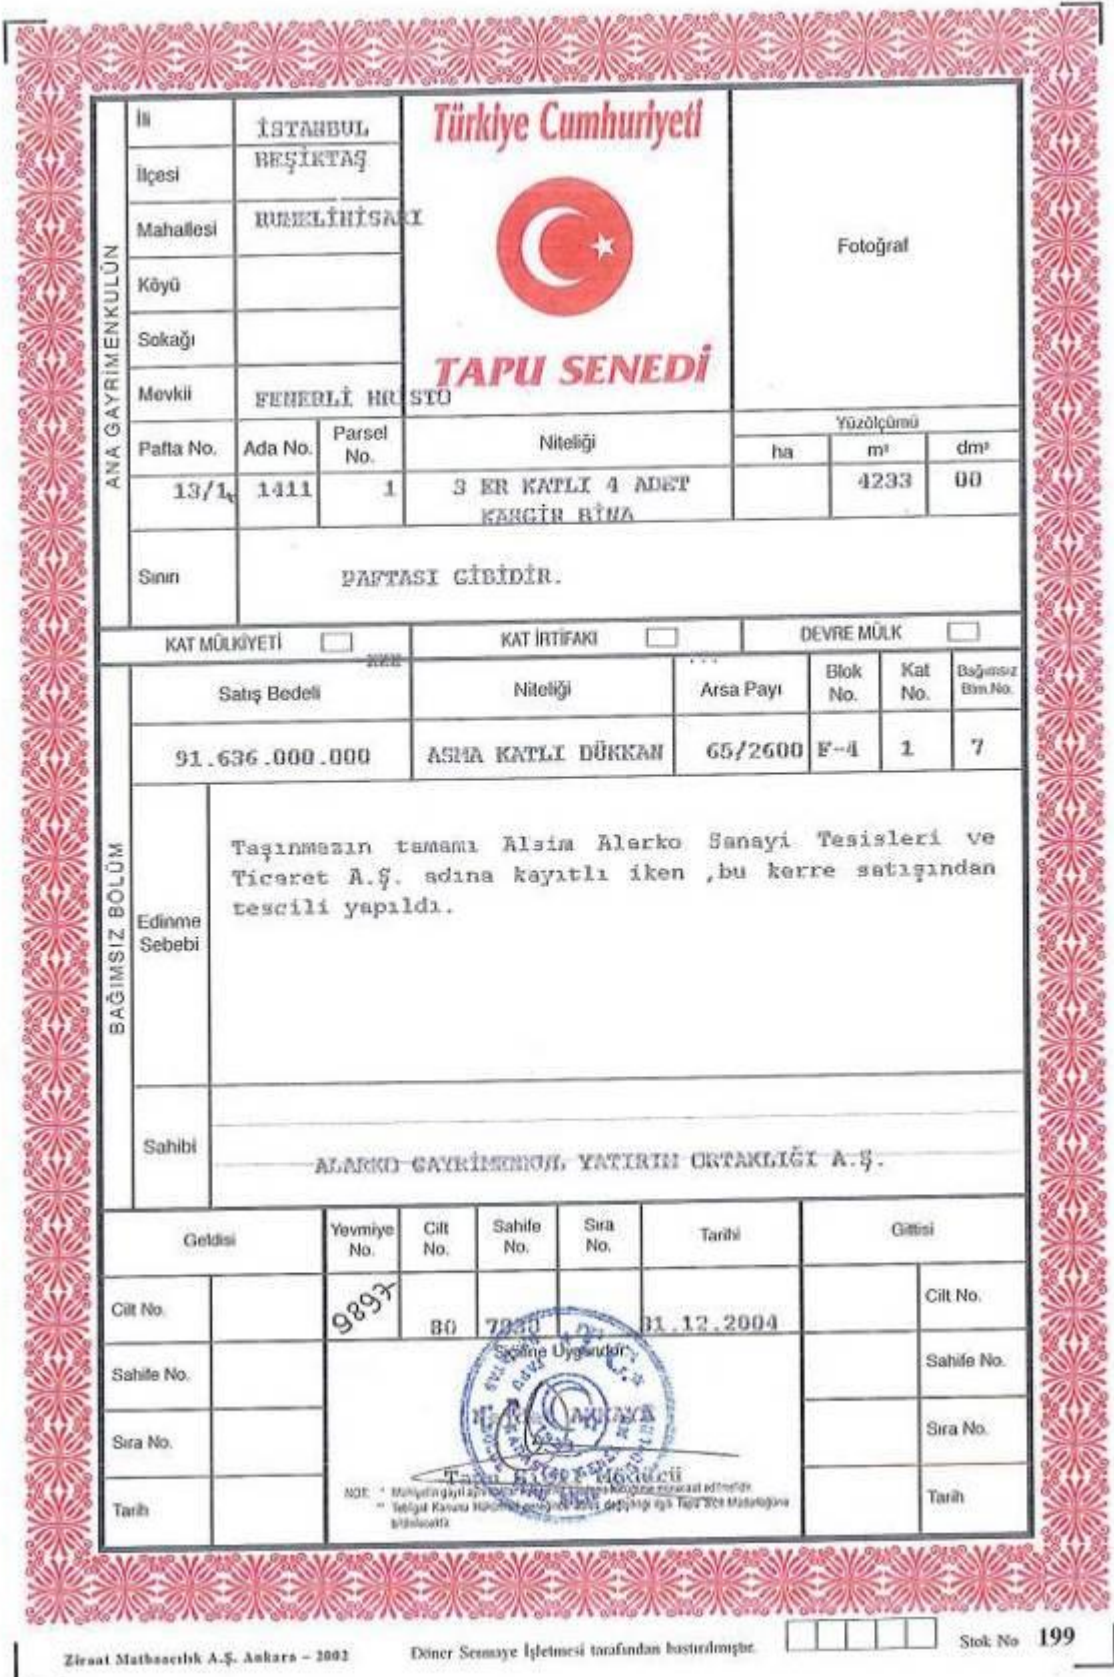 Türkiye Cumhuriyeti
TAPU SENEDİ
Fotoğraf
ANA GAYRİMENKULÜN
İli İSTANBUL
İlçesi BEŞİKTAŞ
Mahallesi RUMELİHİSARI
Köyü
Sokağı
Mevkii FENERLİ HRİSTO
Pafta No. Ada No. Parsel No. Niteliği Yüzölçümü
ha m² dm²
13/1 1411 1 3 ER KATLI 4 ADET 4233 00
KARGİR BİNA
Sınırı PAFTASI GİBİDİR.
KAT MÜLKİYETİ KAT İRTİFAKI DEVRE MÜLK
BAĞIMSIZ BÖLÜM
Satış Bedeli Niteliği Arsa Payı Blok No. Kat No. Bağımsız Blm.No.
91.636.000.000 ASMA KATLI DÜKKAN 65/2600 F-4 1 7
Edinme Sebebi
Taşınmazın tamamı Alsim Alarko Sanayi Tesisleri ve
Ticaret A.Ş. adına kayıtlı iken ,bu kerre satışından
tescili yapıldı.
Sahibi
ALARKO GAYRİMENKUL YATIRIM ORTAKLIĞI A.Ş.
Geldisi Yevmiye No. Cilt No. Sahife No. Sıra No. Tarihi Gittisi
Cilt No. 9897 80 31.12.2004 Cilt No.
Siciline Uygundur
Sahife No. Sahife No.
Sıra No. Sıra No.
Tapu Sicil Müdürü
Tarih Tarih
NOT:
Ziraat Matbaacılık A.Ş. Ankara – 2002
Döner Sermaye İşletmesi tarafından bastırılmıştır.
Stok No 199